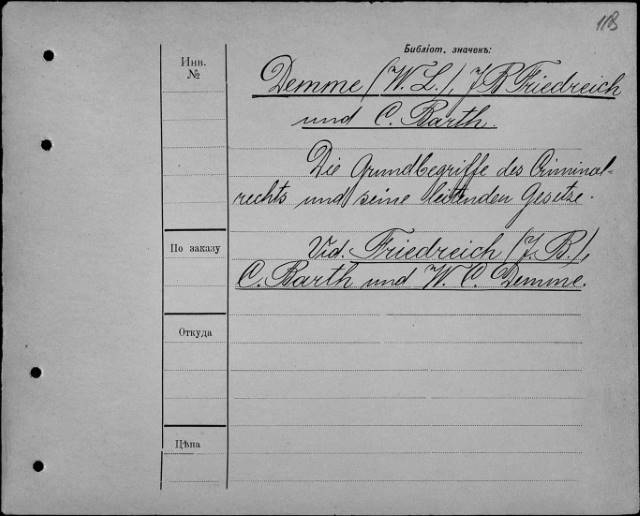 118
Библіот. значекъ:
Инв.
№
Demme (W. L.), J B Friedreich
und C. Barth.
Die Grundbegriffe des Criminal-
rechts und seine leitenden Gesetze.
По заказу
Vid. Friedreich (J. B.),
C. Barth und W. C. Demme.
Откуда
Цѣна